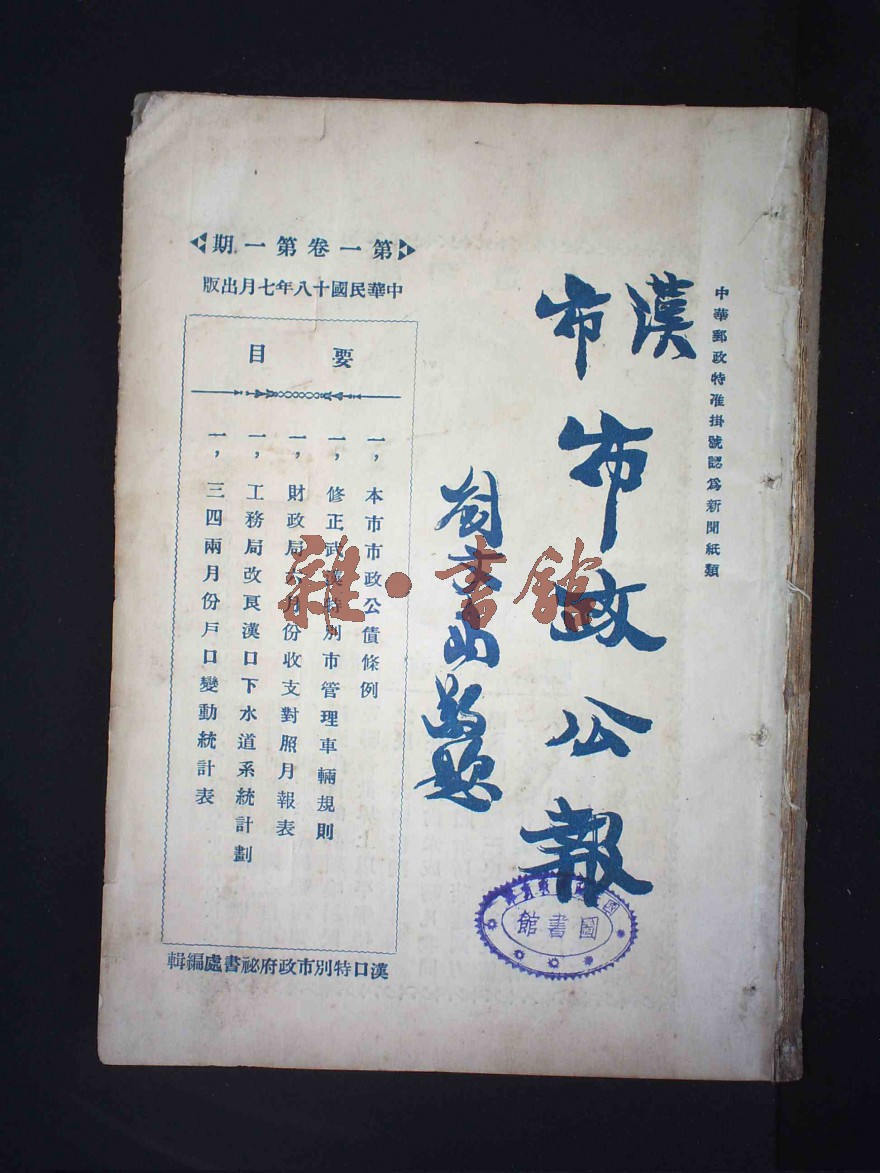 中華郵政特准掛號認為新聞紙類
漢市
市政公報
劉文島
第一卷第一期
中華民國十八年七月出版
要目
一，本市市政公債條例
一，修正武漢特別市管理車輛規則
一，財政局六月份收支對照月報表
一，工務局改良漢口下水道系統計劃
一，三四兩月份戶口變動統計表
漢口特別市政府祕書處編輯
圖書館
雜·書館